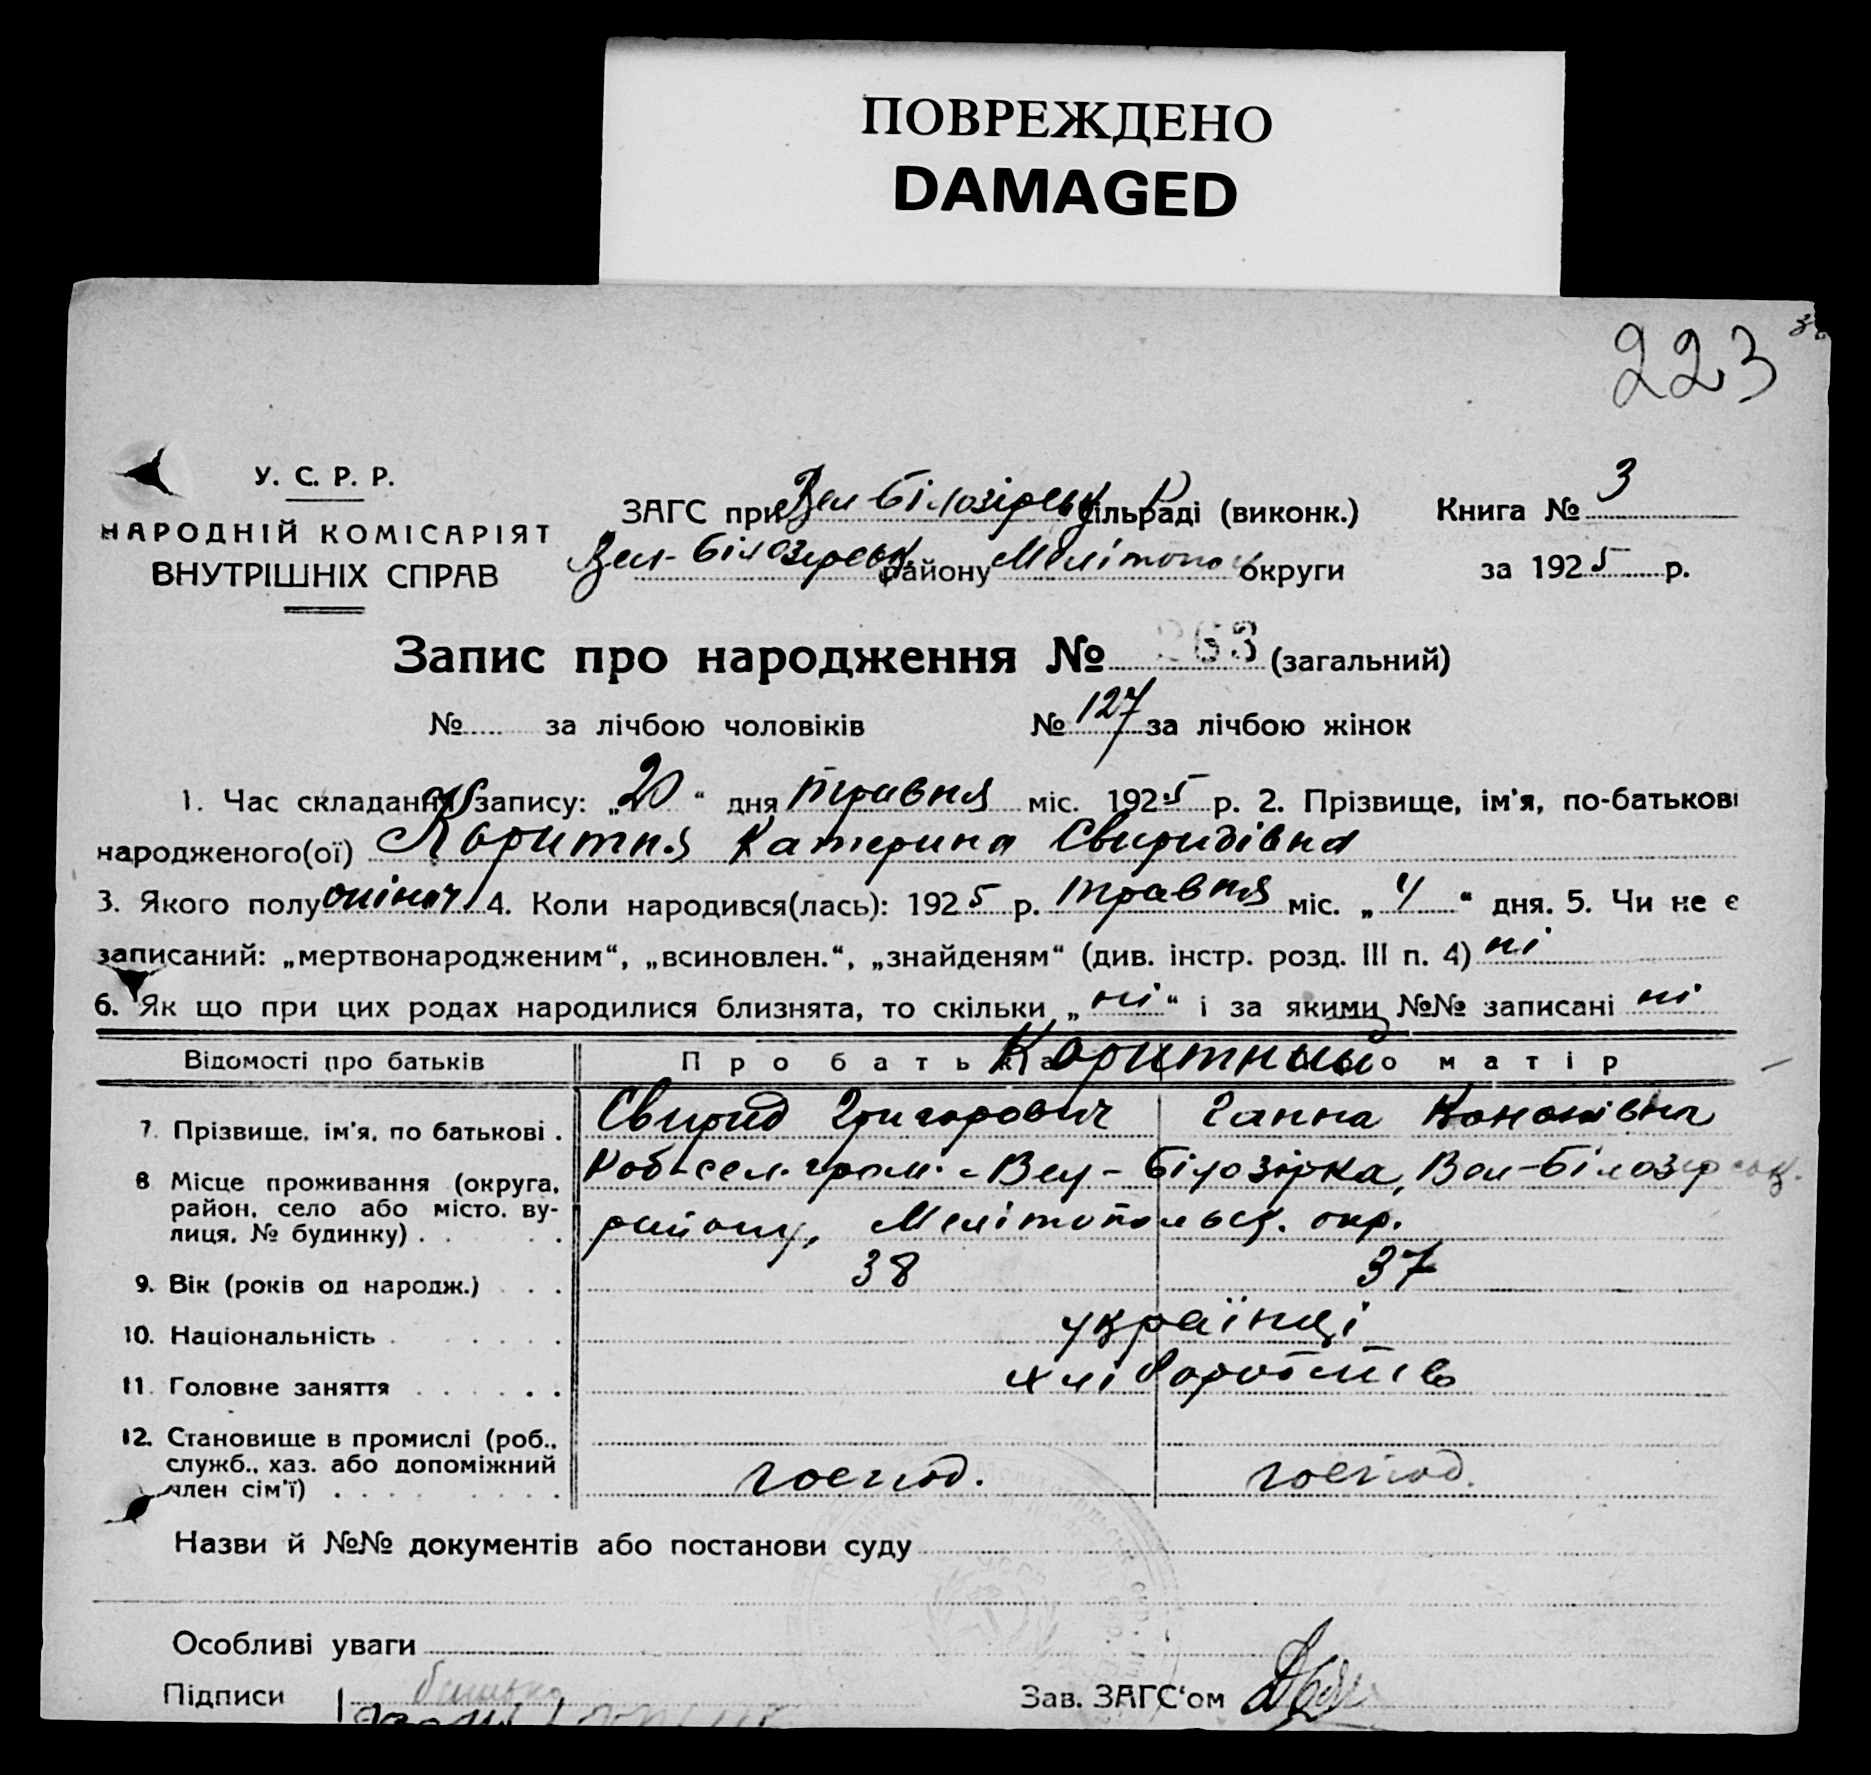 ПОВРЕЖДЕНО
DAMAGED
223
У. С. Р. Р.
НАРОДНІЙ КОМІСАРІЯТ
ВНУТРІШНІХ СПРАВ
ЗАГС при Вел-Білозірськ сільраді (виконк.) Книга № 3
Вел-Білозірськ. району Мелітопо округи за 1925 р.
Запис про народження № 263 (загальний)
№ за лічбою чоловіків № 127 за лічбою жінок
1. Час складання запису: „20“ дня травня міс. 1925 р. 2. Прізвище, ім'я, по-батькові
народженого(ої) Коритня Катерина Свиридівна
3. Якого полу жіноч 4. Коли народився(лась): 1925 р. травня міс. „4“ дня. 5. Чи не є
записаний: „мертвонародженим“, „всиновлен.“, „знайденям“ (див. інстр. розд. III п. 4) ні
6. Як що при цих родах народилися близнята, то скільки „ні“ і за якими №№ записані ні
Відомості про батьків Про батька Коритний Про матір
7. Прізвище, ім'я, по батькові . Свирид Григорович Ганна Кононівна
8 Місце проживання (округа, район, село або місто, вулиця, № будинку) . . . . сел. гром. Вел-Білозірка, Вел-Білозірськ.
району, Мелітопольськ. окр.
9. Вік (років од народж.) . . . 38 37
10. Національність . . . . . . українці
11. Головне заняття . . . . . . хліборобство
12. Становище в промислі (роб., служб., хаз. або допоміжний член сім'ї) . . . . . . . . господ. господ.
Назви й №№ документів або постанови суду
Особливі уваги
Підписи батько
Зав. ЗАГС‘ом